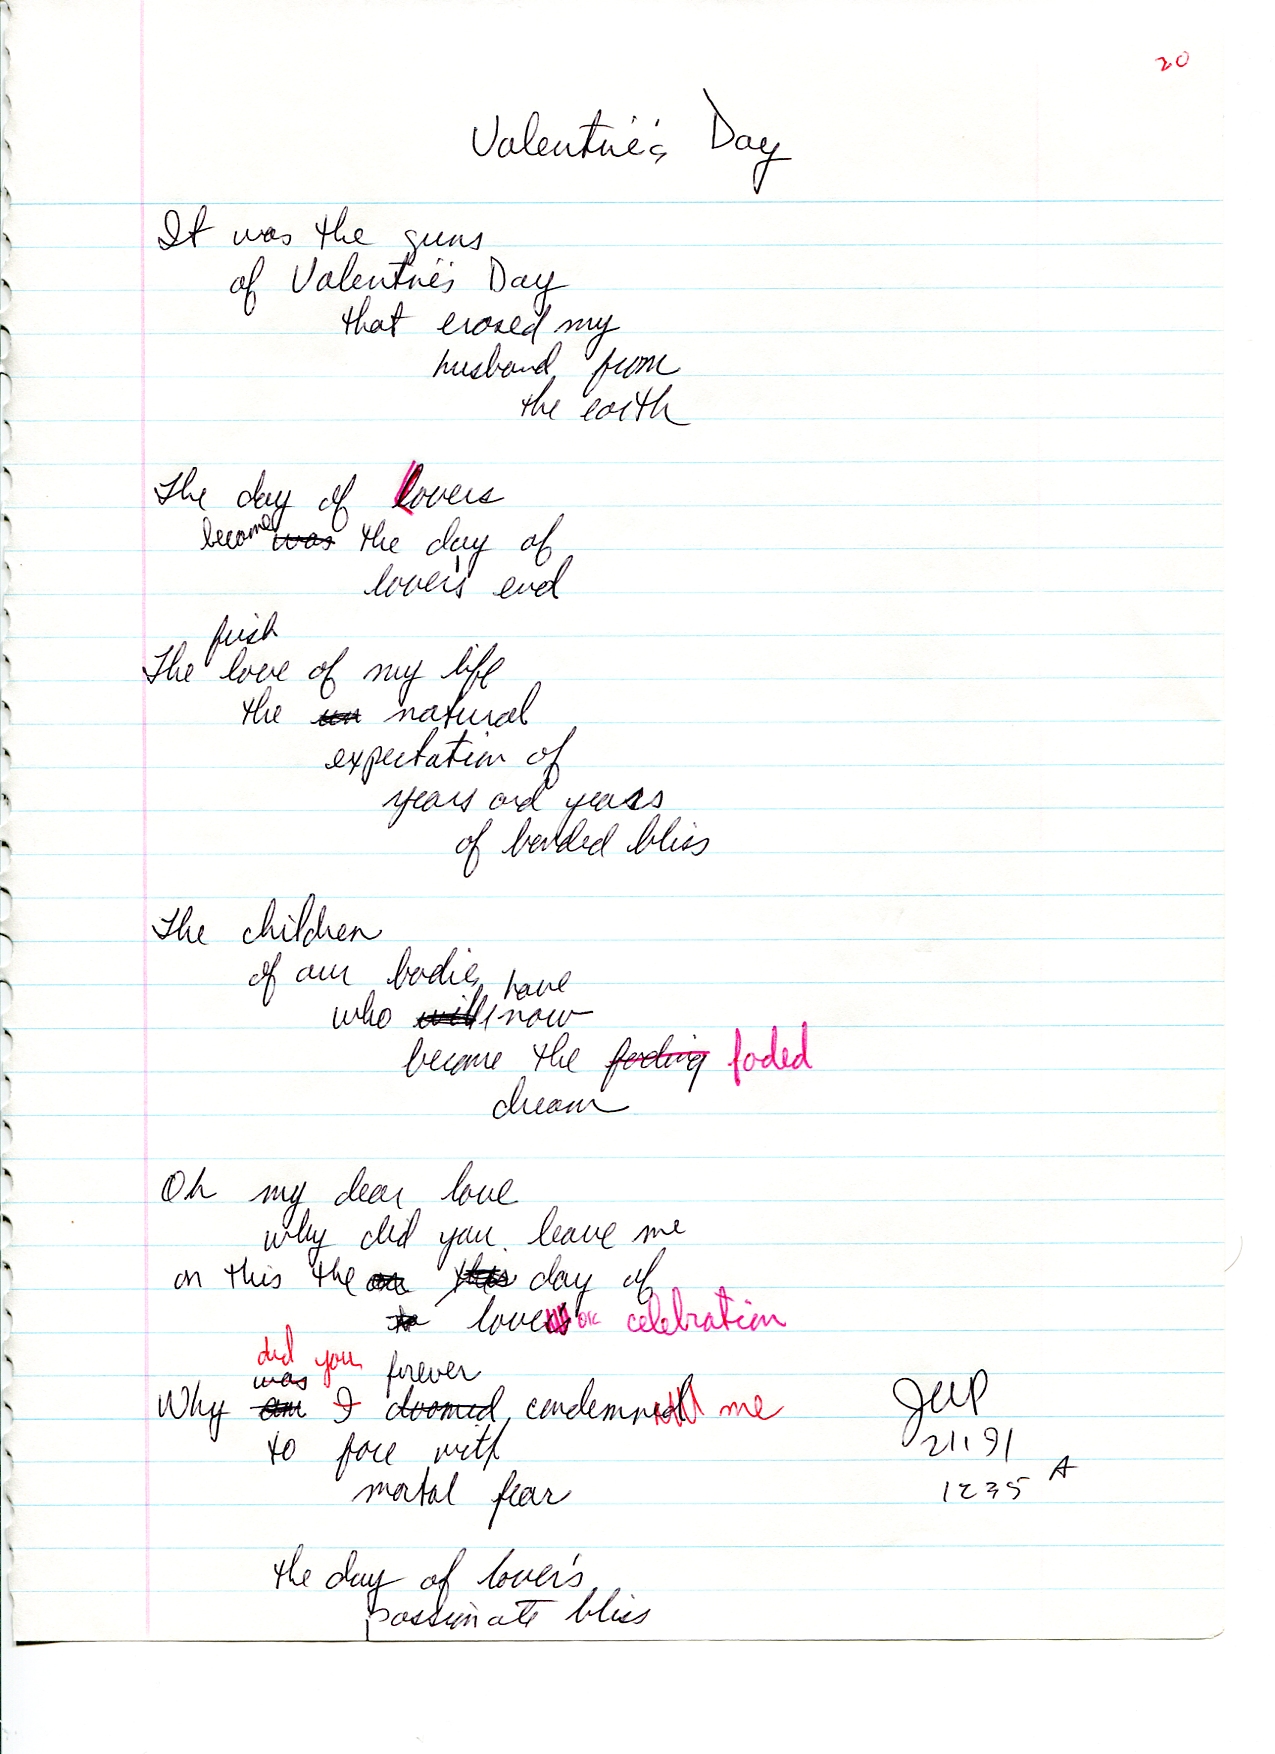 20
Valentine's Day
It was the guns
of Valentine's Day
that erased my
husband from
the earth
The day of lovers
become was the day of
lover's end
fresh
The love of my life
the un natural
expectation of
years and years
of bonded bliss
The children
of our bodies
have
who will now
become the fading faded
dream
Oh my dear love
why did you leave me
on this the on this day of
to love or celebration
did you
was forever
Why am I doomed condemned me
to face with
mortal fear
JWP
21191
1235 A
the day of lover's
passionate bliss